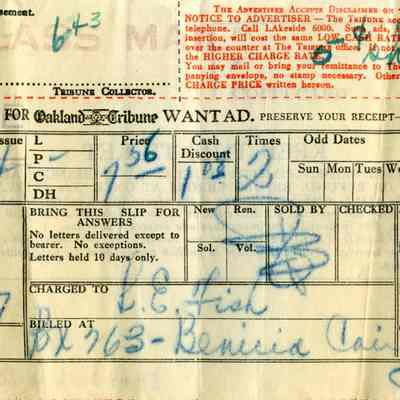 sement.
6 43
TRIBUNE COLLECTOR.
THE ADVERTISER ACCEPTS DISCLAIMER ON
NOTICE TO ADVERTISER — The Tribune acc
telephone. Call LAkeside 6000. Such ad
insertion, will cost the same LOW CASH RATE
over the counter at The Tribune office. If not
the HIGHER CHARGE RATE
You may mail or bring your remittance to The
panying envelope, no stamp necessary. Other
CHARGE PRICE written hereon.
FOR Oakland Tribune WANT AD. PRESERVE YOUR RECEIPT—
ssue L P C DH
Price 1 56
Cash Discount 1 03
Times 2
Odd Dates
Sun Mon Tues We
BRING THIS SLIP FOR
ANSWERS
No letters delivered except to
bearer. No exceptions.
Letters held 10 days only.
New Ren. SOLD BY CHECKED
Sol. Vol.
CHARGED TO L. E. Fish
BILLED AT Bx 763 - Benicia